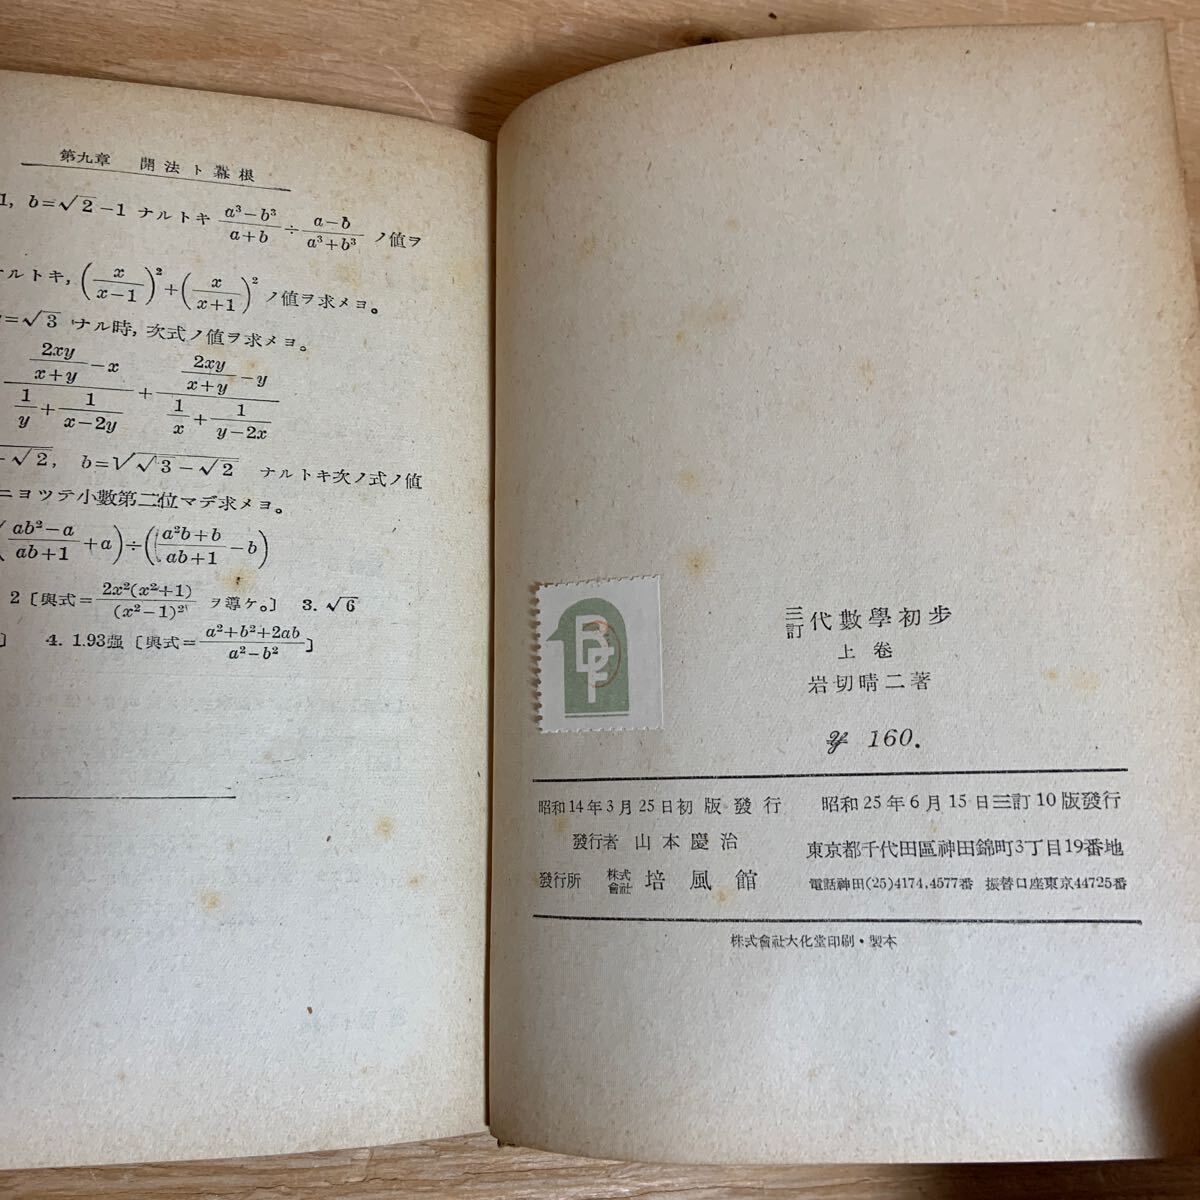 第九章 開法ト冪根
1, b=√2-1 ナルトキ (a³-b³)/(a+b) ÷ (a-b)/(a³+b³) ノ値ヲ
ナルトキ, (x/(x-1))²+(x/(x+1))² ノ値ヲ求メヨ。
=√3 ナル時, 次式ノ値ヲ求メヨ。
(2xy/(x+y) - x)/(1/y + 1/(x-2y)) + (2xy/(x+y) - y)/(1/x + 1/(y-2x))
-√2, b=√(√3-√2) ナルトキ次ノ式ノ値
ニヨツテ小數第二位マデ求メヨ。
((ab²-a)/(ab+1) + a)÷((a²b+b)/(ab+1) - b)
2 [與式=2x²(x²+1)/(x²-1)² ヲ導ケ。] 3. √6
] 4. 1.93强 [與式=(a²+b²+2ab)/(a²-b²)]
三訂 代數學初步
上卷
岩切晴二著
¥ 160.
昭和14年3月25日初版發行 昭和25年6月15日三訂10版發行
發行者 山本慶治 東京都千代田區神田錦町3丁目19番地
發行所 株式會社 培風館 電話神田(25)4174,4577番 振替口座東京44725番
株式會社大化堂印刷・製本